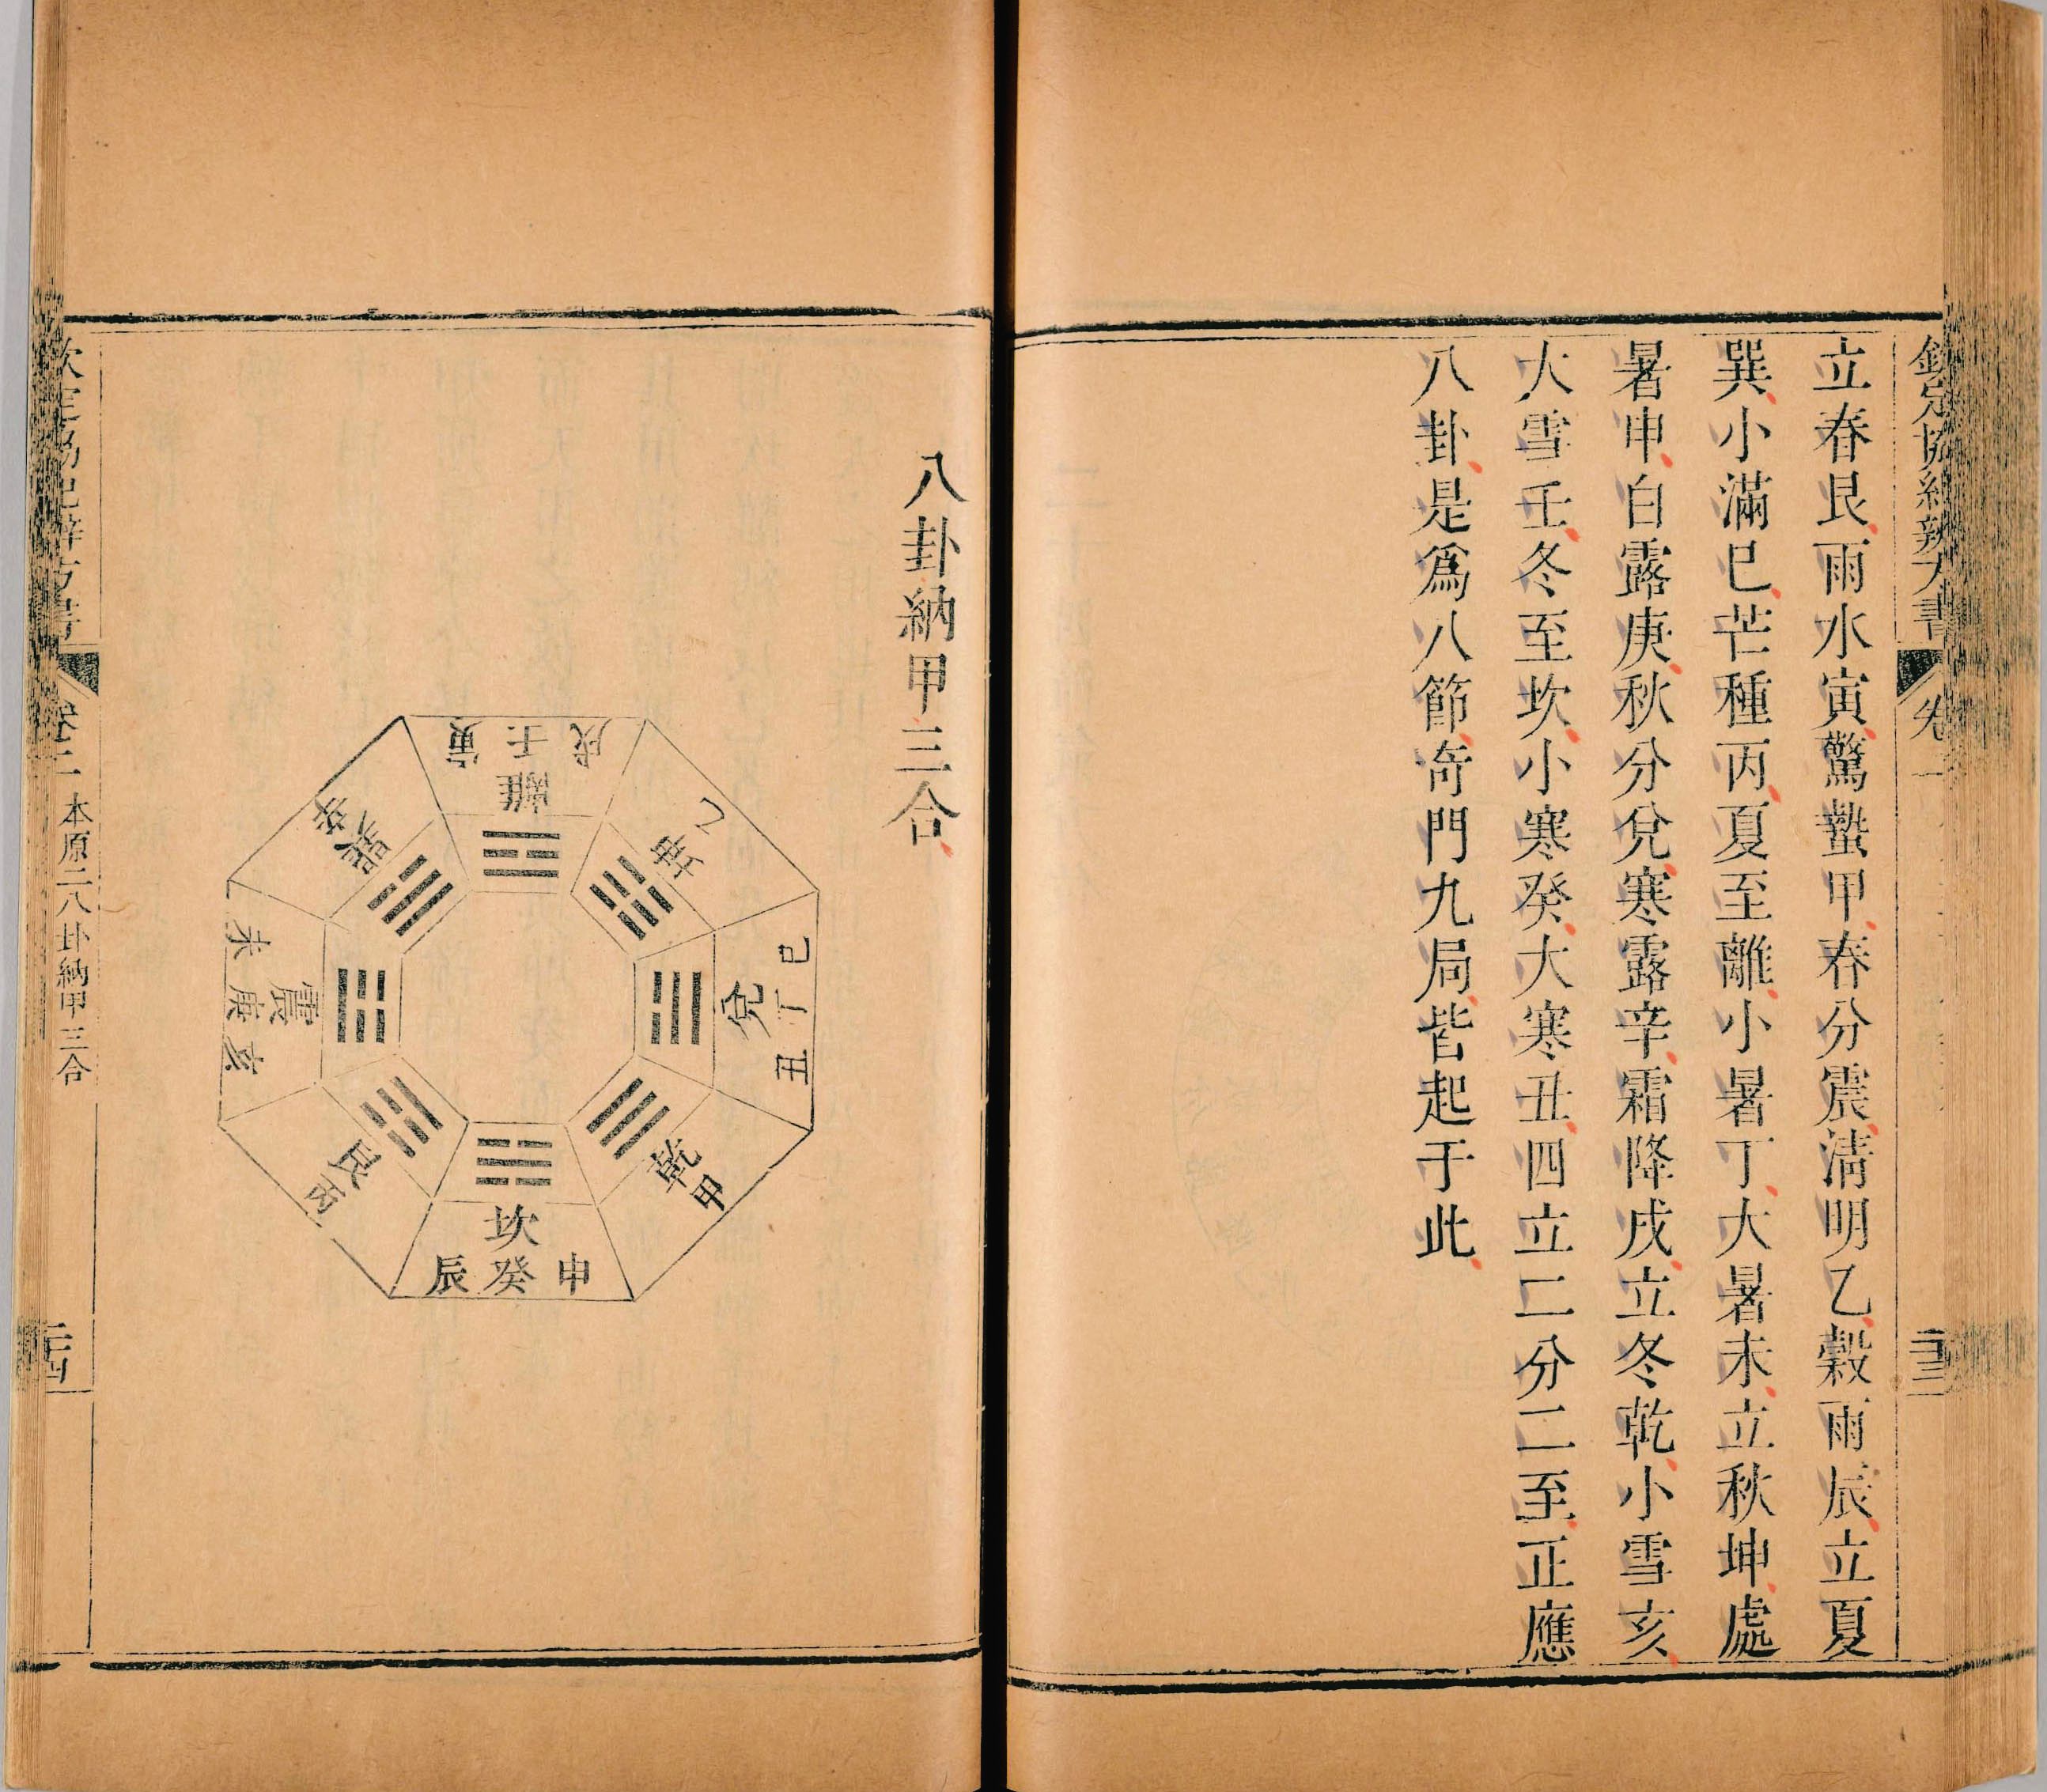 欽定協紀辨方書
卷一
二十三
立春艮雨水寅驚蟄甲春分震清明乙穀雨辰立夏
巽小滿巳芒種丙夏至離小暑丁大暑未立秋坤處
暑申白露庚秋分兌寒露辛霜降戌立冬乾小雪亥
大雪壬冬至坎小寒癸大寒丑四立二分二至正應
八卦是爲八節奇門九局皆起于此
八卦納甲三合
戌壬寅
離
乙
坤
巳丁丑
兌
乾
甲
坎
申癸辰
艮
丙
震
亥庚未
巽
辛
欽定協紀辨方書
卷二
本原二八卦納甲三合
二十四